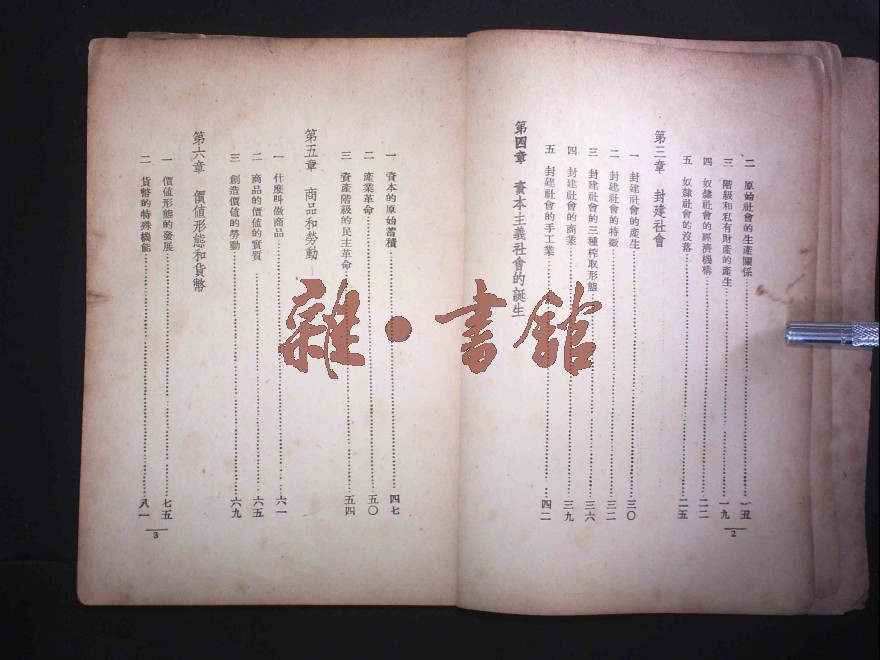 二 原始社會的生產關係……一五
三 階級和私有財產的產生……一九
四 奴隸社會的經濟機構……二二
五 奴隸社會的沒落……二五
第三章 封建社會
一 封建社會的產生……三〇
二 封建社會的特徵……三二
三 封建社會的三種榨取形態……三六
四 封建社會的商業……三九
五 封建社會的手工業……四二
第四章 資本主義社會的誕生
2
一 資本的原始蓄積……四七
二 產業革命……五〇
三 資產階級的民主革命……五四
第五章 商品和勞動
一 什麼叫做商品……六一
二 商品的價值的實質……六五
三 創造價值的勞動……六九
第六章 價値形態和貨幣
一 價值形態的發展……七五
二 貨幣的特殊機能……八一
3
雜·書館